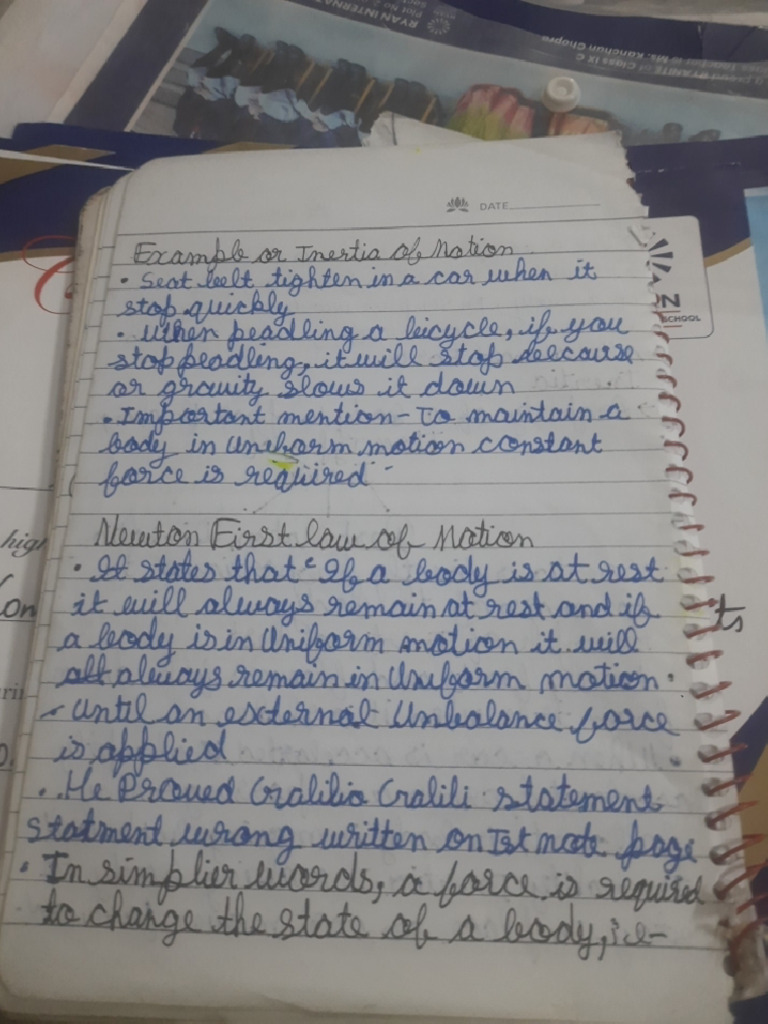 RYAN INTERNAT
Plot No 2
DATE
Example or Inertia of Motion
• Seat belt tighten in a car when it
stop quickly
• When peadling a bicycle, if you
stop peadling, it will stop because
or gravity slows it down
• Important mention - To maintain a
body in Uniform motion constant
force is required
Newton First law of Motion
• It states that "If a body is at rest
it will always remain at rest and if
a body is in Uniform motion it will
always remain in Uniform motion.
- until an external Unbalance force
is applied
• He Proved Gralilio Gralili statement
statment wrong written on Ist note page
• In simplier words, a force is required
to change the state of a body, i.e-
SCHOOL
high
on
ts